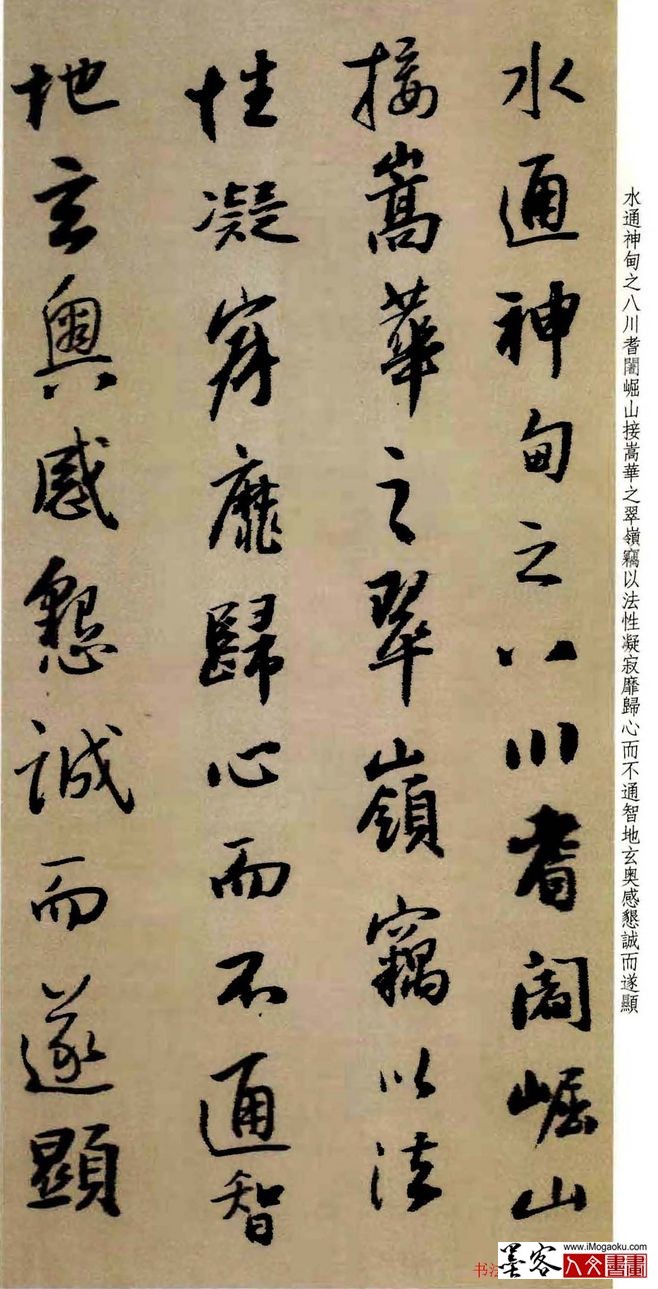 水通神甸之八川耆闍崛山
接嵩華之翠嶺竊以法
性凝寂靡歸心而不通智
地玄奧感懇誠而遂顯
水通神甸之八川耆闍崛山接嵩華之翠嶺竊以法性凝寂靡歸心而不通智地玄奧感懇誠而遂顯
www.iMogaoku.com
墨客
人文書畫